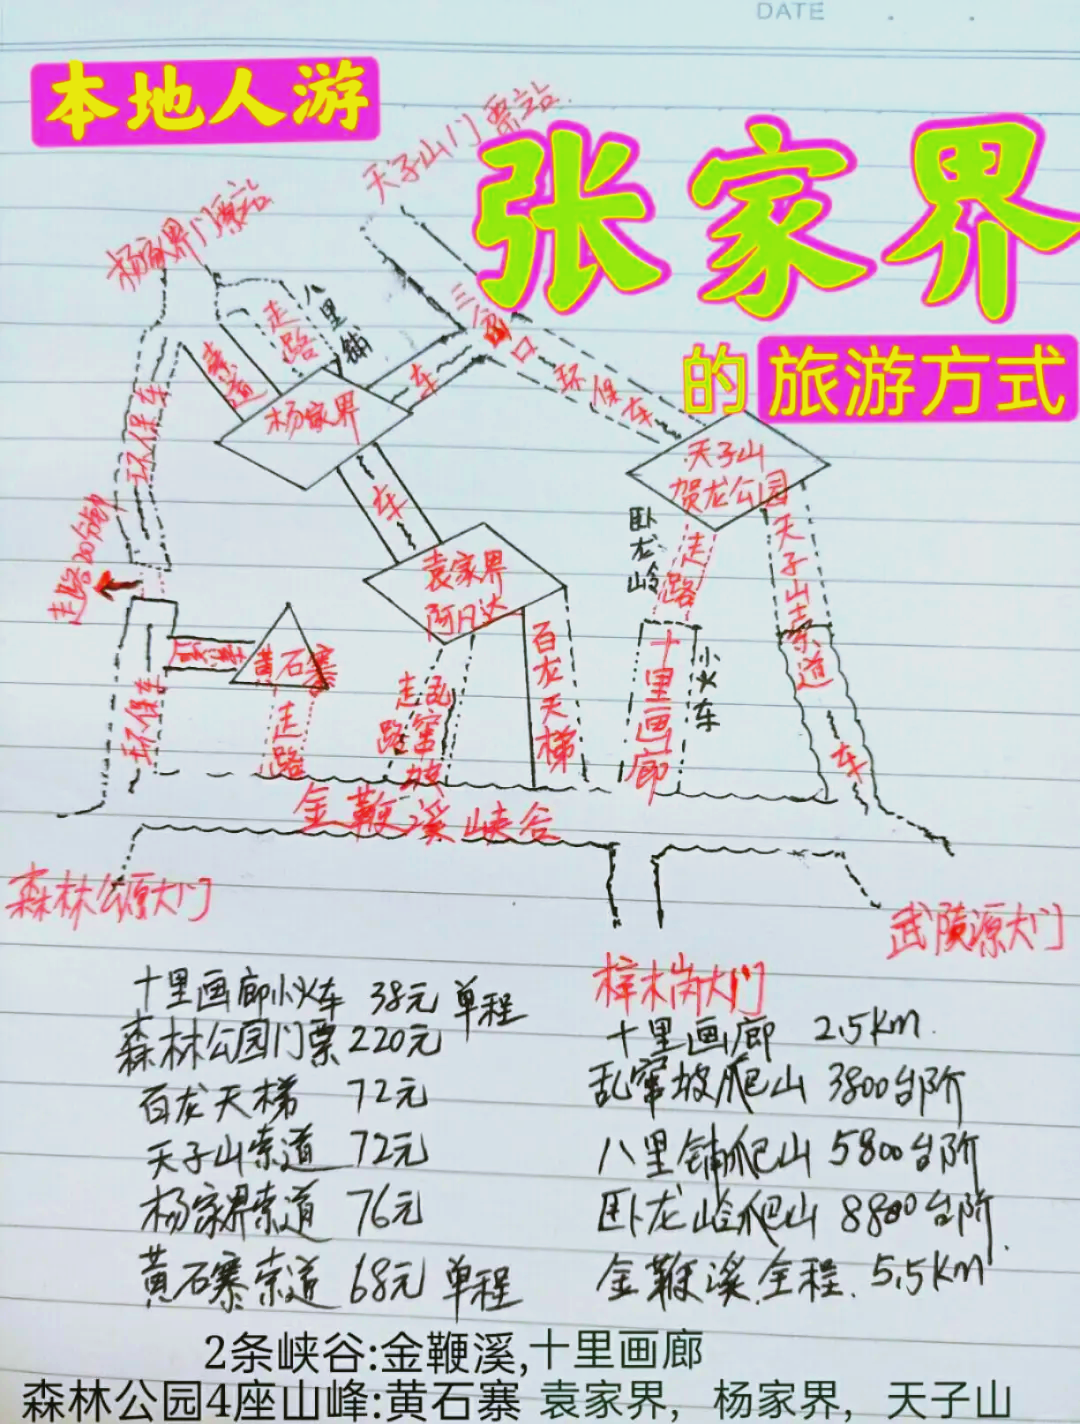 DATE
本地人游
张家界
的旅游方式
天子山门票站
杨家界门票站
八里铺
走路
索道
三岔口
车
环保车
环保车
杨家界
天子山
贺龙公园
车
卧龙岭
走路
天子山索道
袁家界
阿凡达
走路20分钟
百龙天梯
十里画廊
小火车
黄石寨
索道
环保车
走路
走路
乱窜坡
车
金鞭溪峡谷
森林公原大门
武陵源大门
梓木岗大门
十里画廊小火车 38元 单程
森林公园门票 220元
百龙天梯 72元
天子山索道 72元
杨家界索道 76元
黄石寨索道 68元 单程
十里画廊 2.5km
乱窜坡爬山 3800台阶
八里铺爬山 5800台阶
卧龙岭爬山 8800台阶
金鞭溪全程. 5.5km
2条峡谷:金鞭溪,十里画廊
森林公园4座山峰:黄石寨 袁家界, 杨家界, 天子山